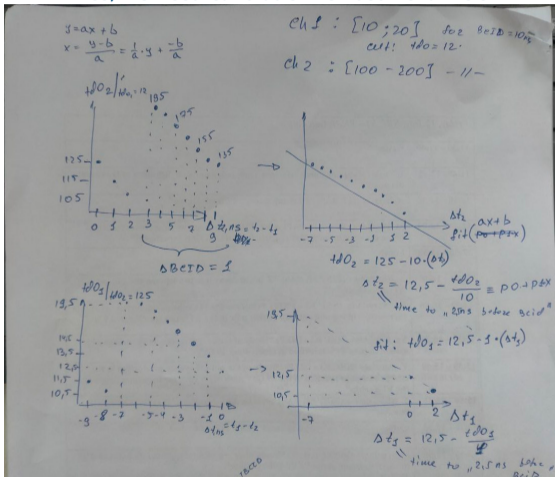 y=ax+b
x = y-b/a = 1/a · y + -b/a
ch1 : [10 ; 20] for BCID=10
cut: tdo = 12
ch2 : [100 - 200] -11-
tdo2/tdo1=12
195
175
155
135
125
115
105
0 1 2 3 5 7 9
Δt, ns = t2-t1
ΔBCID = 1
-7 -5 -3 -1 1 2
Δt2
ax+b
fit (p0+p1x)
tdo2 = 125 - 10·(Δt)
Δt2 = 12,5 - tdo2/10 = p0+p1x
time to "25ns before bcid"
tdo1/tdo2=125
19,5
14,5
13,5
12,5
11,5
10,5
-9 -8 -7 -5 -4 -3 -1 0
Δt ns = t1-t2
19,5
12,5
10,5
-7 0 2
Δt1
fit: tdo1 = 12,5 - 1·(Δt1)
Δt1 = 12,5 - tdo1/1
time to "2,5ns before
BCID